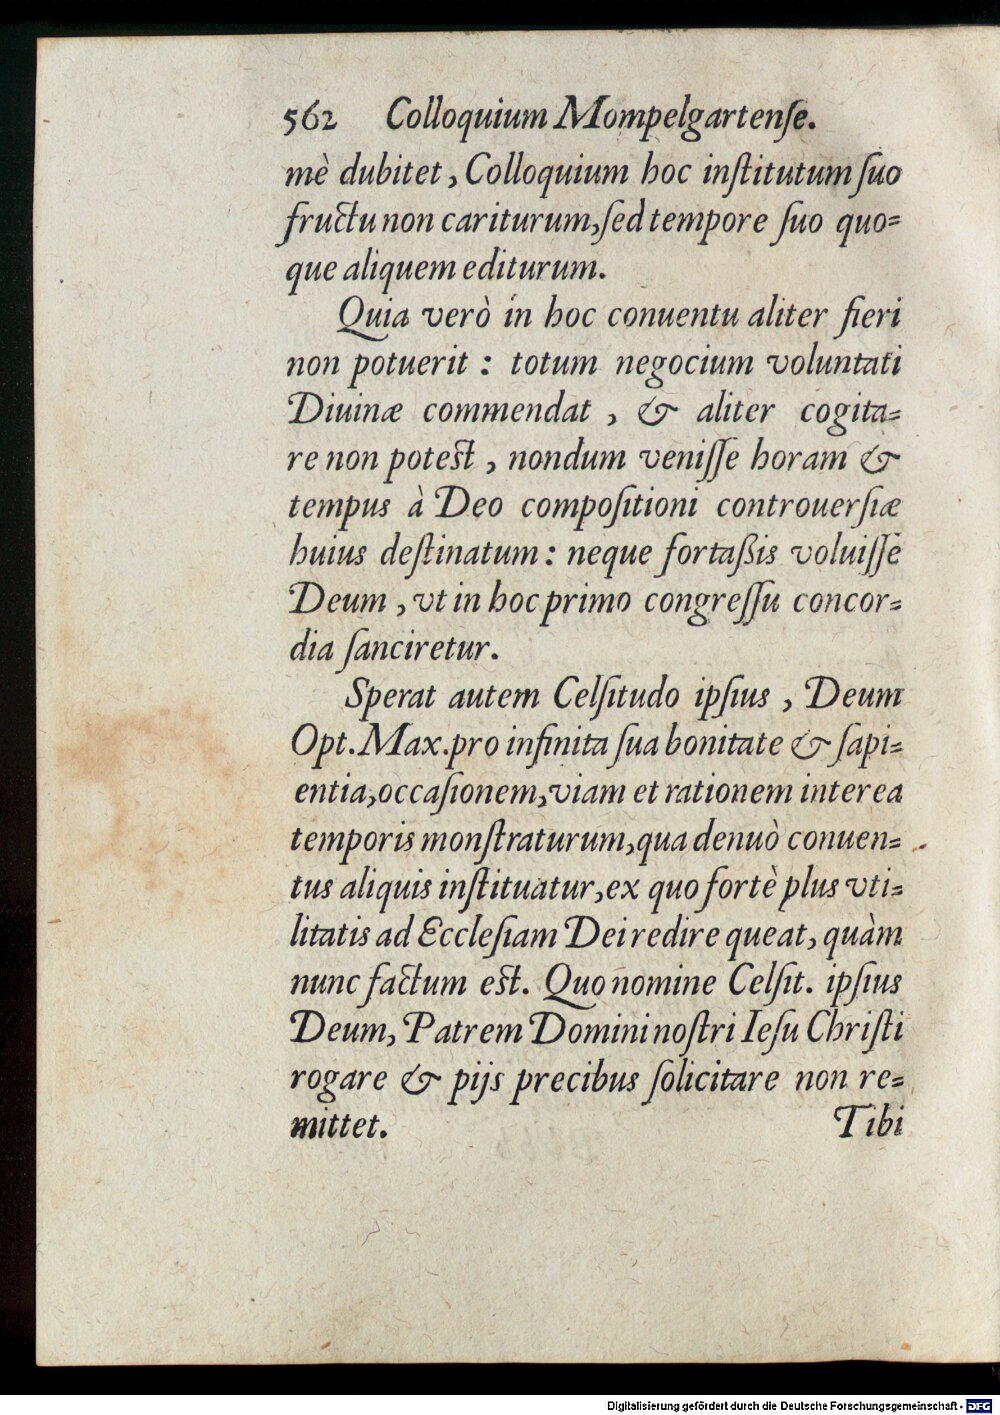 562 Colloquium Mompelgartenſe.
mè dubitet, Colloquium hoc inſtitutum ſuo
fructu non cariturum, ſed tempore ſuo quo-
que aliquem editurum.
Quia verò in hoc conuentu aliter fieri
non potuerit : totum negocium voluntati
Diuinæ commendat , & aliter cogita-
re non potest , nondum veniſſe horam &
tempus à Deo compoſitioni controuerſiæ
huius deſtinatum : neque fortaßis voluiſſe
Deum , vt in hoc primo congreſſu concor-
dia ſanciretur.
Sperat autem Celſitudo ipſius , Deum
Opt. Max. pro infinita ſua bonitate & ſapi-
entia, occaſionem, viam et rationem interea
temporis monſtraturum, qua denuò conuen-
tus aliquis inſtituatur, ex quo fortè plus vti-
litatis ad Eccleſiam Dei redire queat, quàm
nunc factum est. Quo nomine Celſit. ipſius
Deum, Patrem Domini noſtri Ieſu Chriſti
rogare & pijs precibus ſolicitare non re-
mittet. Tibi
Digitalisierung gefördert durch die Deutsche Forschungsgemeinschaft - DFG